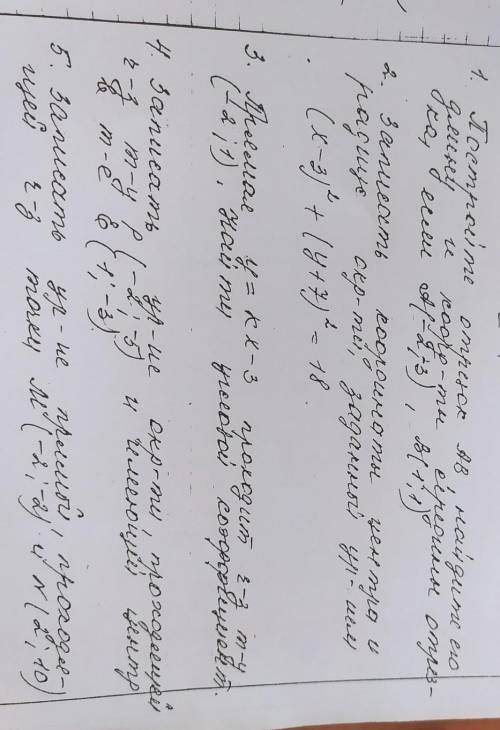 1. Постройте отрезок АВ найдите его
длину и коор-ты середины отрез-
ка, если А(-2;3), В(1;1)
2. Записать координаты центра и
радиус окр-ти, заданной ур-ием
(x-3)² + (y+7)² = 18.
3. Прямая y = kx-3 проходит ч-з т-у
(-2;1), найти угловой коэффициент.
4. Записать ур-ие окр-ти, проходящей
ч-з т-у P(-2;-5) и имеющий центр
в т-е E(1;-3)
5. Записать ур-ие прямой, проходя-
щей ч-з точки M(-2;-2) и N(2;10)